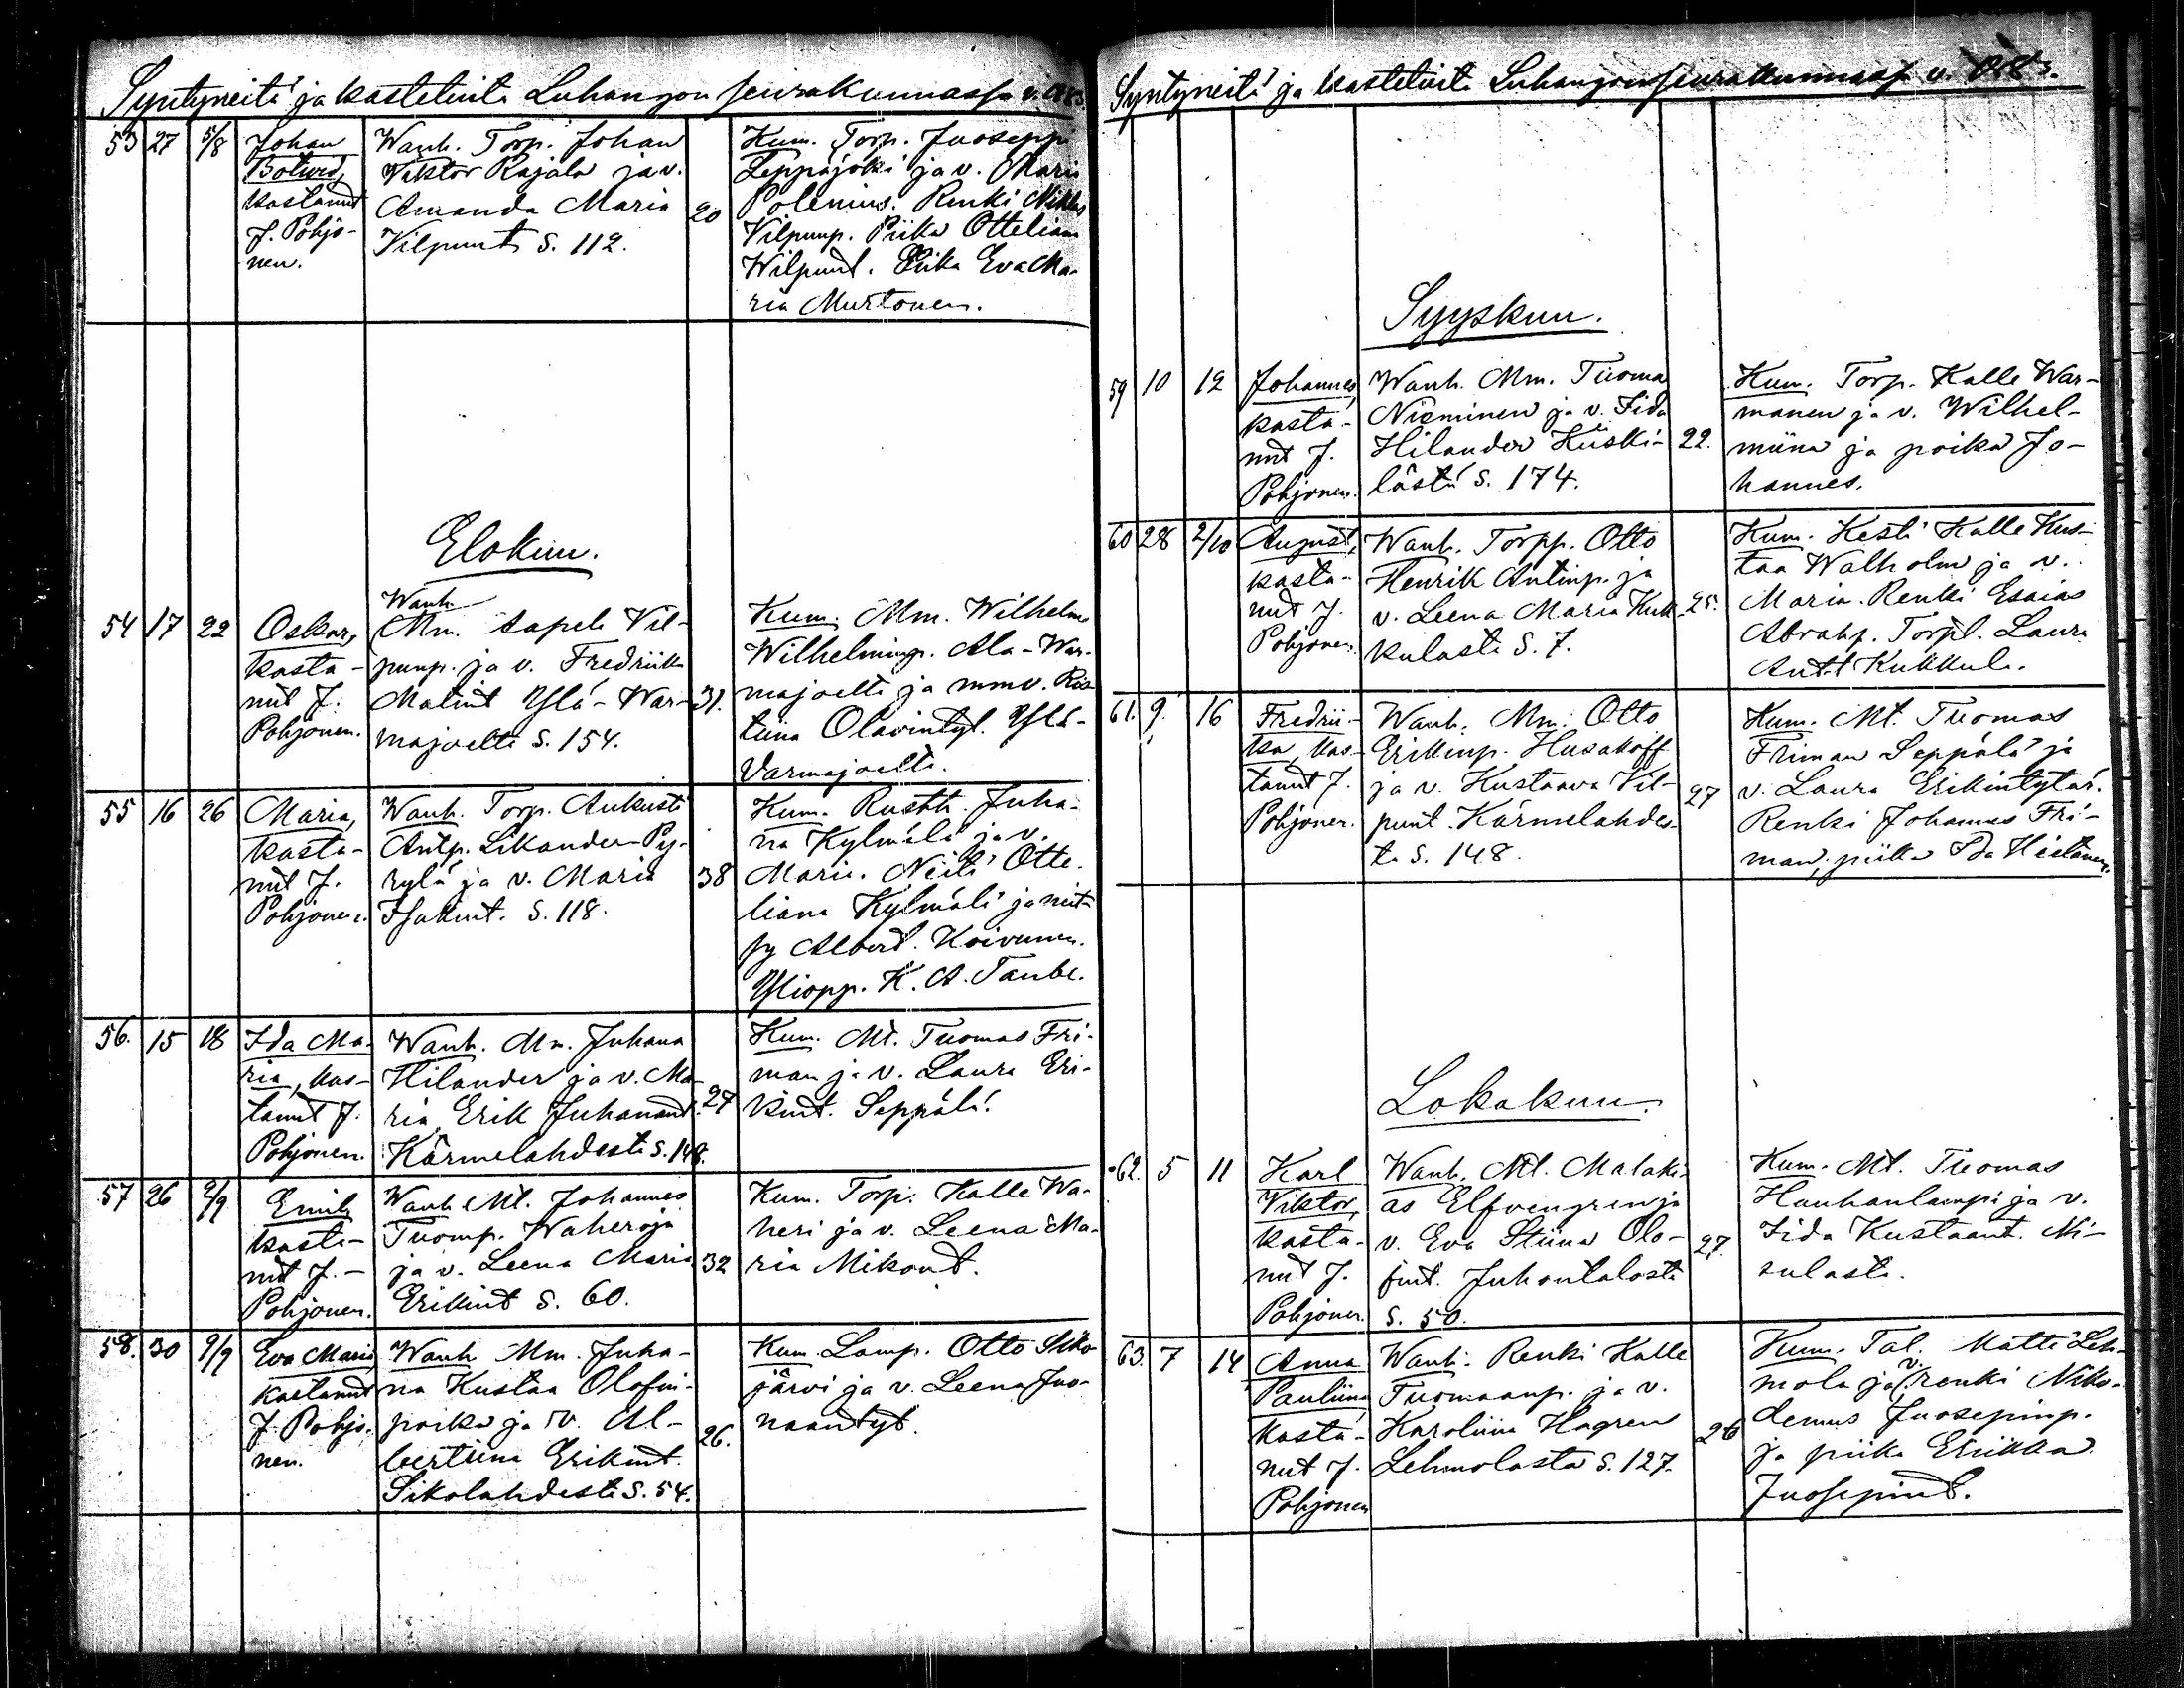 Syntyneitä ja kastetuita Luhangon seurakunnassa v.
53 27 5/8 Johan
Botwid,
kastanut
J. Pohjo-
nen.
Wanh. Torp. Johan
Viktor Rajala ja v.
Amanda Maria
Vilpunt. S. 112.
20
Kum. Torp. Juosepp
Leppäjoki ja v. Maria
Polenius. Renki Niklas
Vilpunp. Piika Otteliana
Wilpunt. Piika Eva Ma-
ria Murtonen.
Elokuu.
54 17 22 Oskar,
kasta-
nut J.
Pohjonen.
Wanh.
Mm. Aapeli Vil-
punp. ja v. Fredriika
Matint Ylä-War-
majoelta S. 154.
31.
Kum. Mm. Wilhelm
Wilhelminp. Ala-War-
majoelta ja mmv. Kris-
tiina Olavintyt. Ylä-
Varmajoelta.
55 16 26 Maria,
kasta-
nut J.
Pohjonen.
Wanh. Torp. Aukusti
Antp. Sikander Py-
rylä ja v. Maria
Isakint. S. 118.
38
Kum. Rustit. Juha-
na Kylmälä ja v.
Maria. Neiti Otte-
liana Kylmälä ja neit-
sy Albert. Koivunen.
Yliopp. K. A. Taube.
56. 15 18 Ida Ma-
ria, kas-
tanut J.
Pohjonen.
Wanh. Mm. Juhana
Hilander ja v. Ma-
ria Erik Juhanant.
Kärmelahdesta S. 148.
27
Kum. Mt. Tuomas Fri-
man ja v. Laura Eri-
kint. Seppälä.
57 26 2/9 Emil,
kasta-
nut J.
Pohjonen.
Wanh. Mt. Johannes
Tuomp. Waheroja
ja v. Leena Maria
Erikint S. 60.
32
Kum. Torp. Kalle Wa-
heri ja v. Leena Ma-
ria Mikont.
58. 30 9/9 Eva Maria
kastanut
J. Pohjo-
nen.
Wanh. Mm. Juha-
na Kustaa Olofin-
poika ja v. Al-
bertiina Erikint.
Sikolahdesta S. 54.
26.
Kum. Lamp. Otto Siko-
järvi ja v. Leena Juo-
naantyt.
Syntyneitä ja kastetuita Luhangon seurakunnassa v.
Syyskuu.
59 10 12 Johannes,
kasta-
nut J.
Pohjonen.
Wanh. Mm. Tuoma
Nieminen ja v. Iida
Hilander Kiiski-
lästä S. 174.
22.
Kum. Torp. Kalle War-
manen ja v. Wilhel-
miina ja poika Jo-
hannes.
60 28 2/10 August,
kasta-
nut J.
Pohjonen.
Wanh. Torpp. Otto
Henrik Antinp. ja
v. Leena Maria Kuk-
kulasta S. 7.
25.
Kum. Kesti Kalle Kus-
taa Walholm ja v.
Maria. Renki Esaias
Abrahp. Torpt. Laura
Antt Kukkula.
61. 9. 16 Fredrii-
ka, kas-
tanut J.
Pohjonen.
Wanh. Mm. Otto
Erikinp. Husakoff
ja v. Kustaava Vil-
punt. Kärmelahdes-
ta S. 148.
27
Kum. Mt. Tuomas
Friman Seppälä ja
v. Laura Erikintytär.
Renki Johannes Fri-
man, piika Ida Hietanen.
Lokakuu.
62. 5 11 Karl
Viktor,
kasta-
nut J.
Pohjonen.
Wanh. Mt. Malaki-
as Elfvengren ja
v. Eva Stiina Olo-
fint. Juhontalosta
S. 50.
27.
Kum. Mt. Tuomas
Hauhanlampi ja v.
Iida Kustaant. Ni-
sulasta.
63. 7 14 Anna
Pauliina
kasta-
nut J.
Pohjonen
Wanh. Renki Kalle
Tuomaanp. ja v.
Karoliina Hagren
Lehmolasta S. 127.
26
Kum. Tal. Matti Leh-
mola ja v. renki Niko-
demus Juosepinp.
ja piika Eriikka
Juosepint.